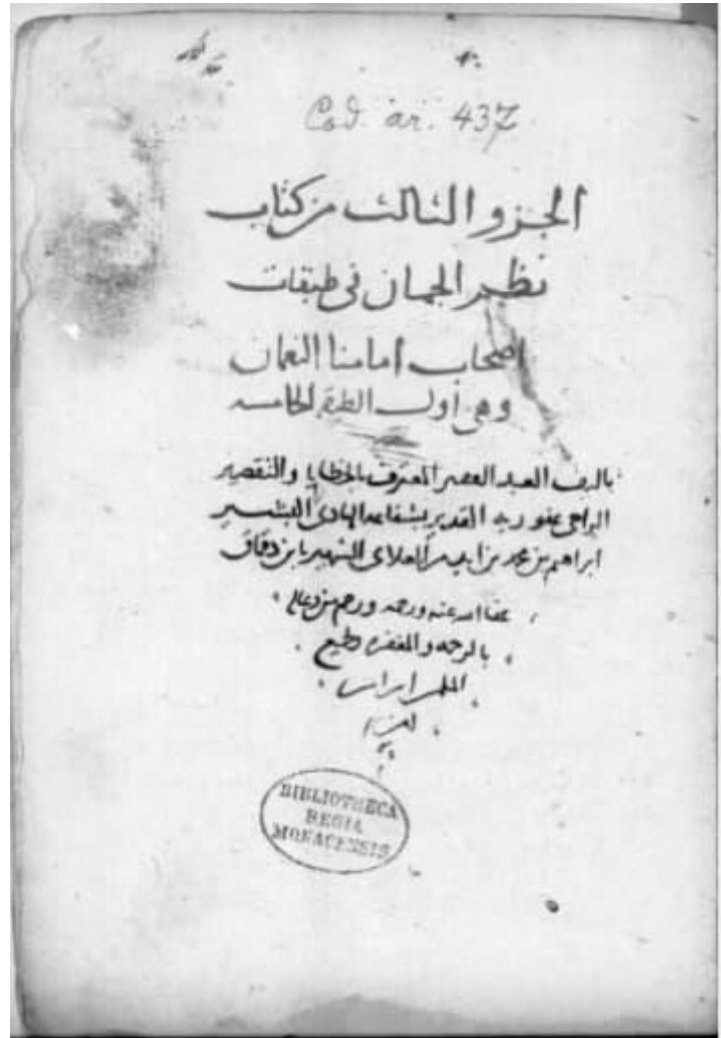 Cod. ar. 437
الجزو الثالث من كتاب
نظم الجمان فى طبقات
اصحاب امامنا النعمان
وهى أول الطبقة الخامسه
تاليف العبد الفقير المعترف بالخطايا والتقصير
الراجى عفو ربه القدير بشفاعه الهادى البشير
ابراهيم بن محمد بن ايدمر العلاى الشهير بابن دقماق
عفا الله عنه ورحمه ورحم من دعا له
بالرحمه والمغفره ولجميع
المسلمين
امين
BIBLIOTHECA
REGIA
MONACENSIS